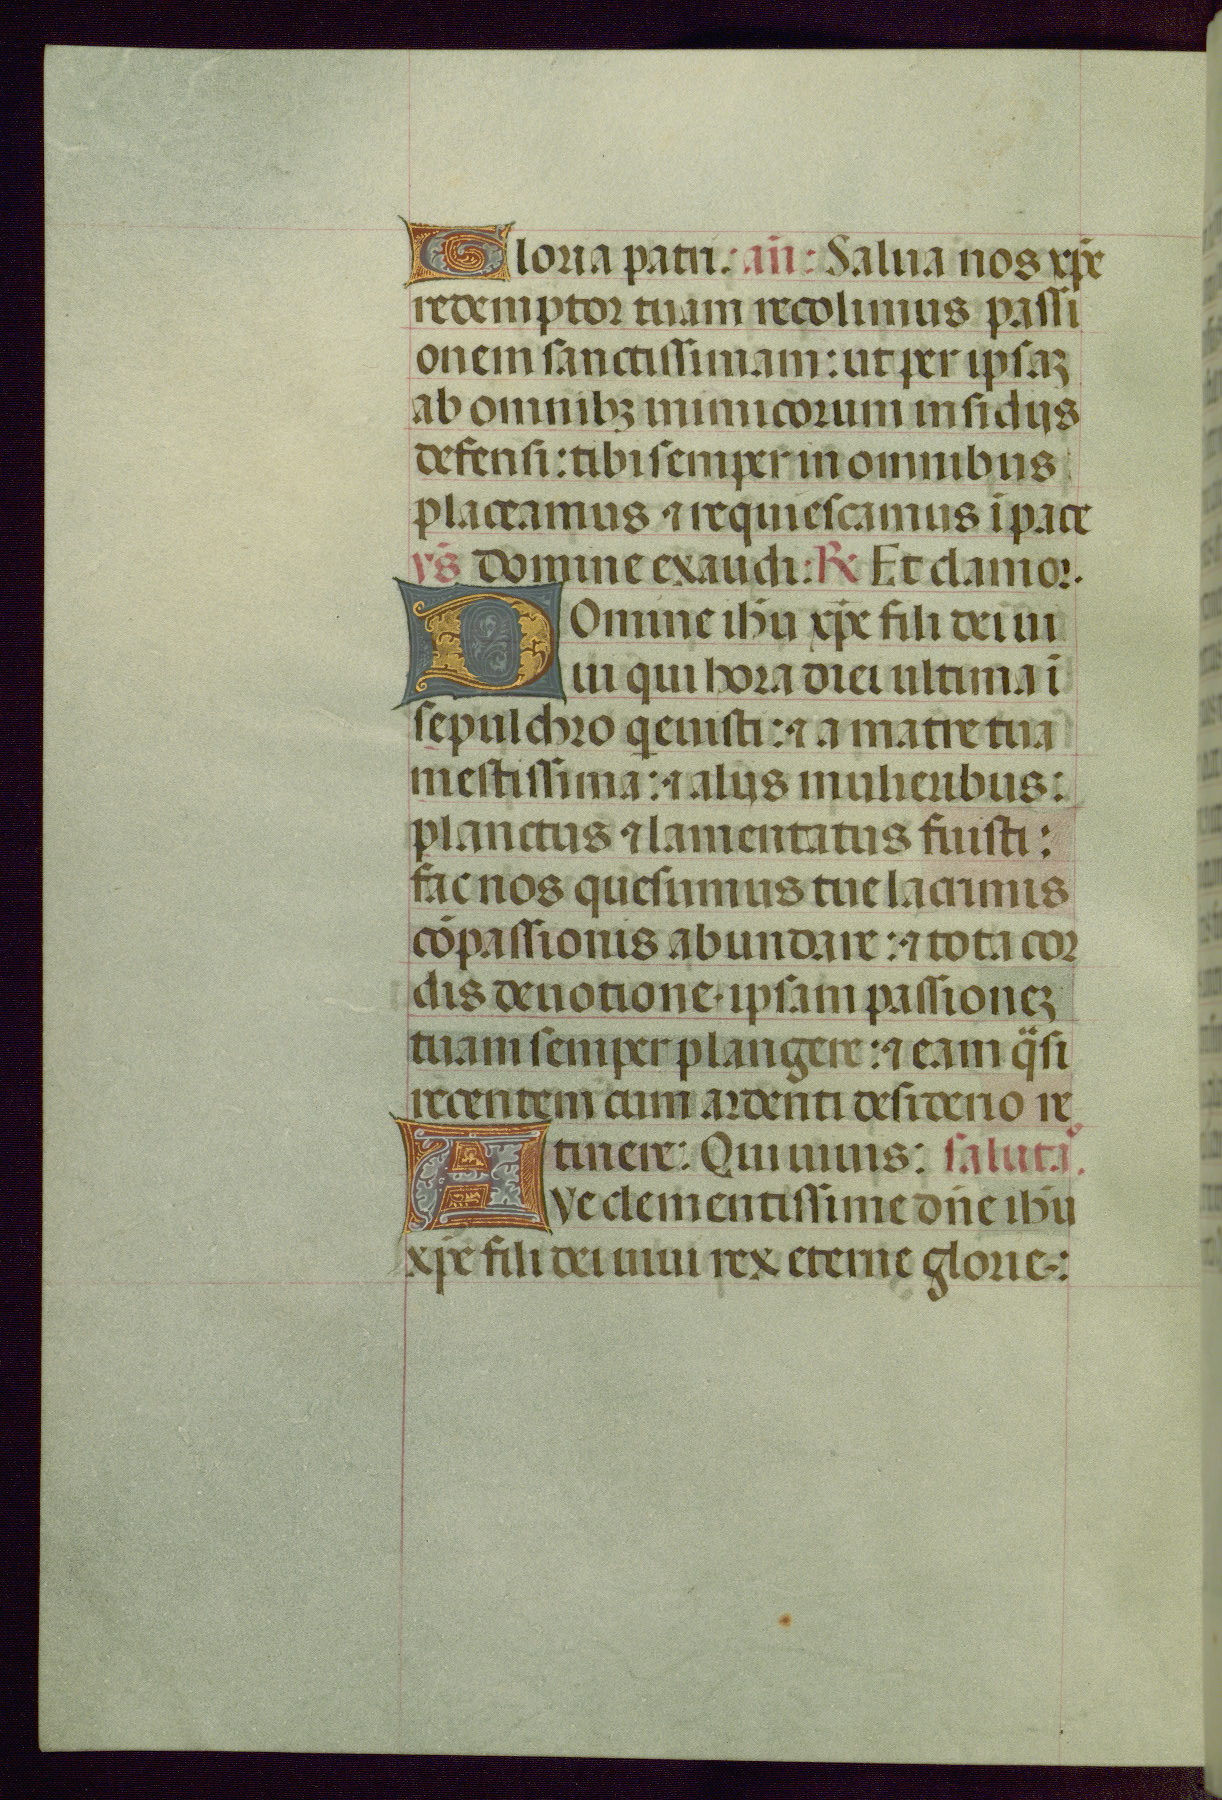 Gloria patri: an̄: Salua nos xp̄e
redemptor tuam recolimus passi
onem sanctissimam: ut per ipsaꝫ
ab omnibꝫ inimicorum insidijs
defensi: tibi semper in omnibus
placeamus ⁊ requiescamus ī pace
vs̄ Domine exaudi: ℟ Et clamor.
Domine ihū xp̄e fili dei ui
ui qui hora diei ultima ī
sepulchro q̄euisti: ⁊ a matre tua
mestissima: ⁊ alijs mulieribus:
planctus ⁊ lamentatus fuisti:
fac nos quesumus tue lacrimis
cōpassionis abundare: ⁊ tota cor
dis deuotione· ipsam passioneꝫ
tuam semper plangere: ⁊ eam q̄si
recentem cum ardenti desiderio re
tinere: Qui uiuis: saluta°.
Ave clementissime dn̄e ihū
xp̄e fili dei uiui rex eterne glorie-: